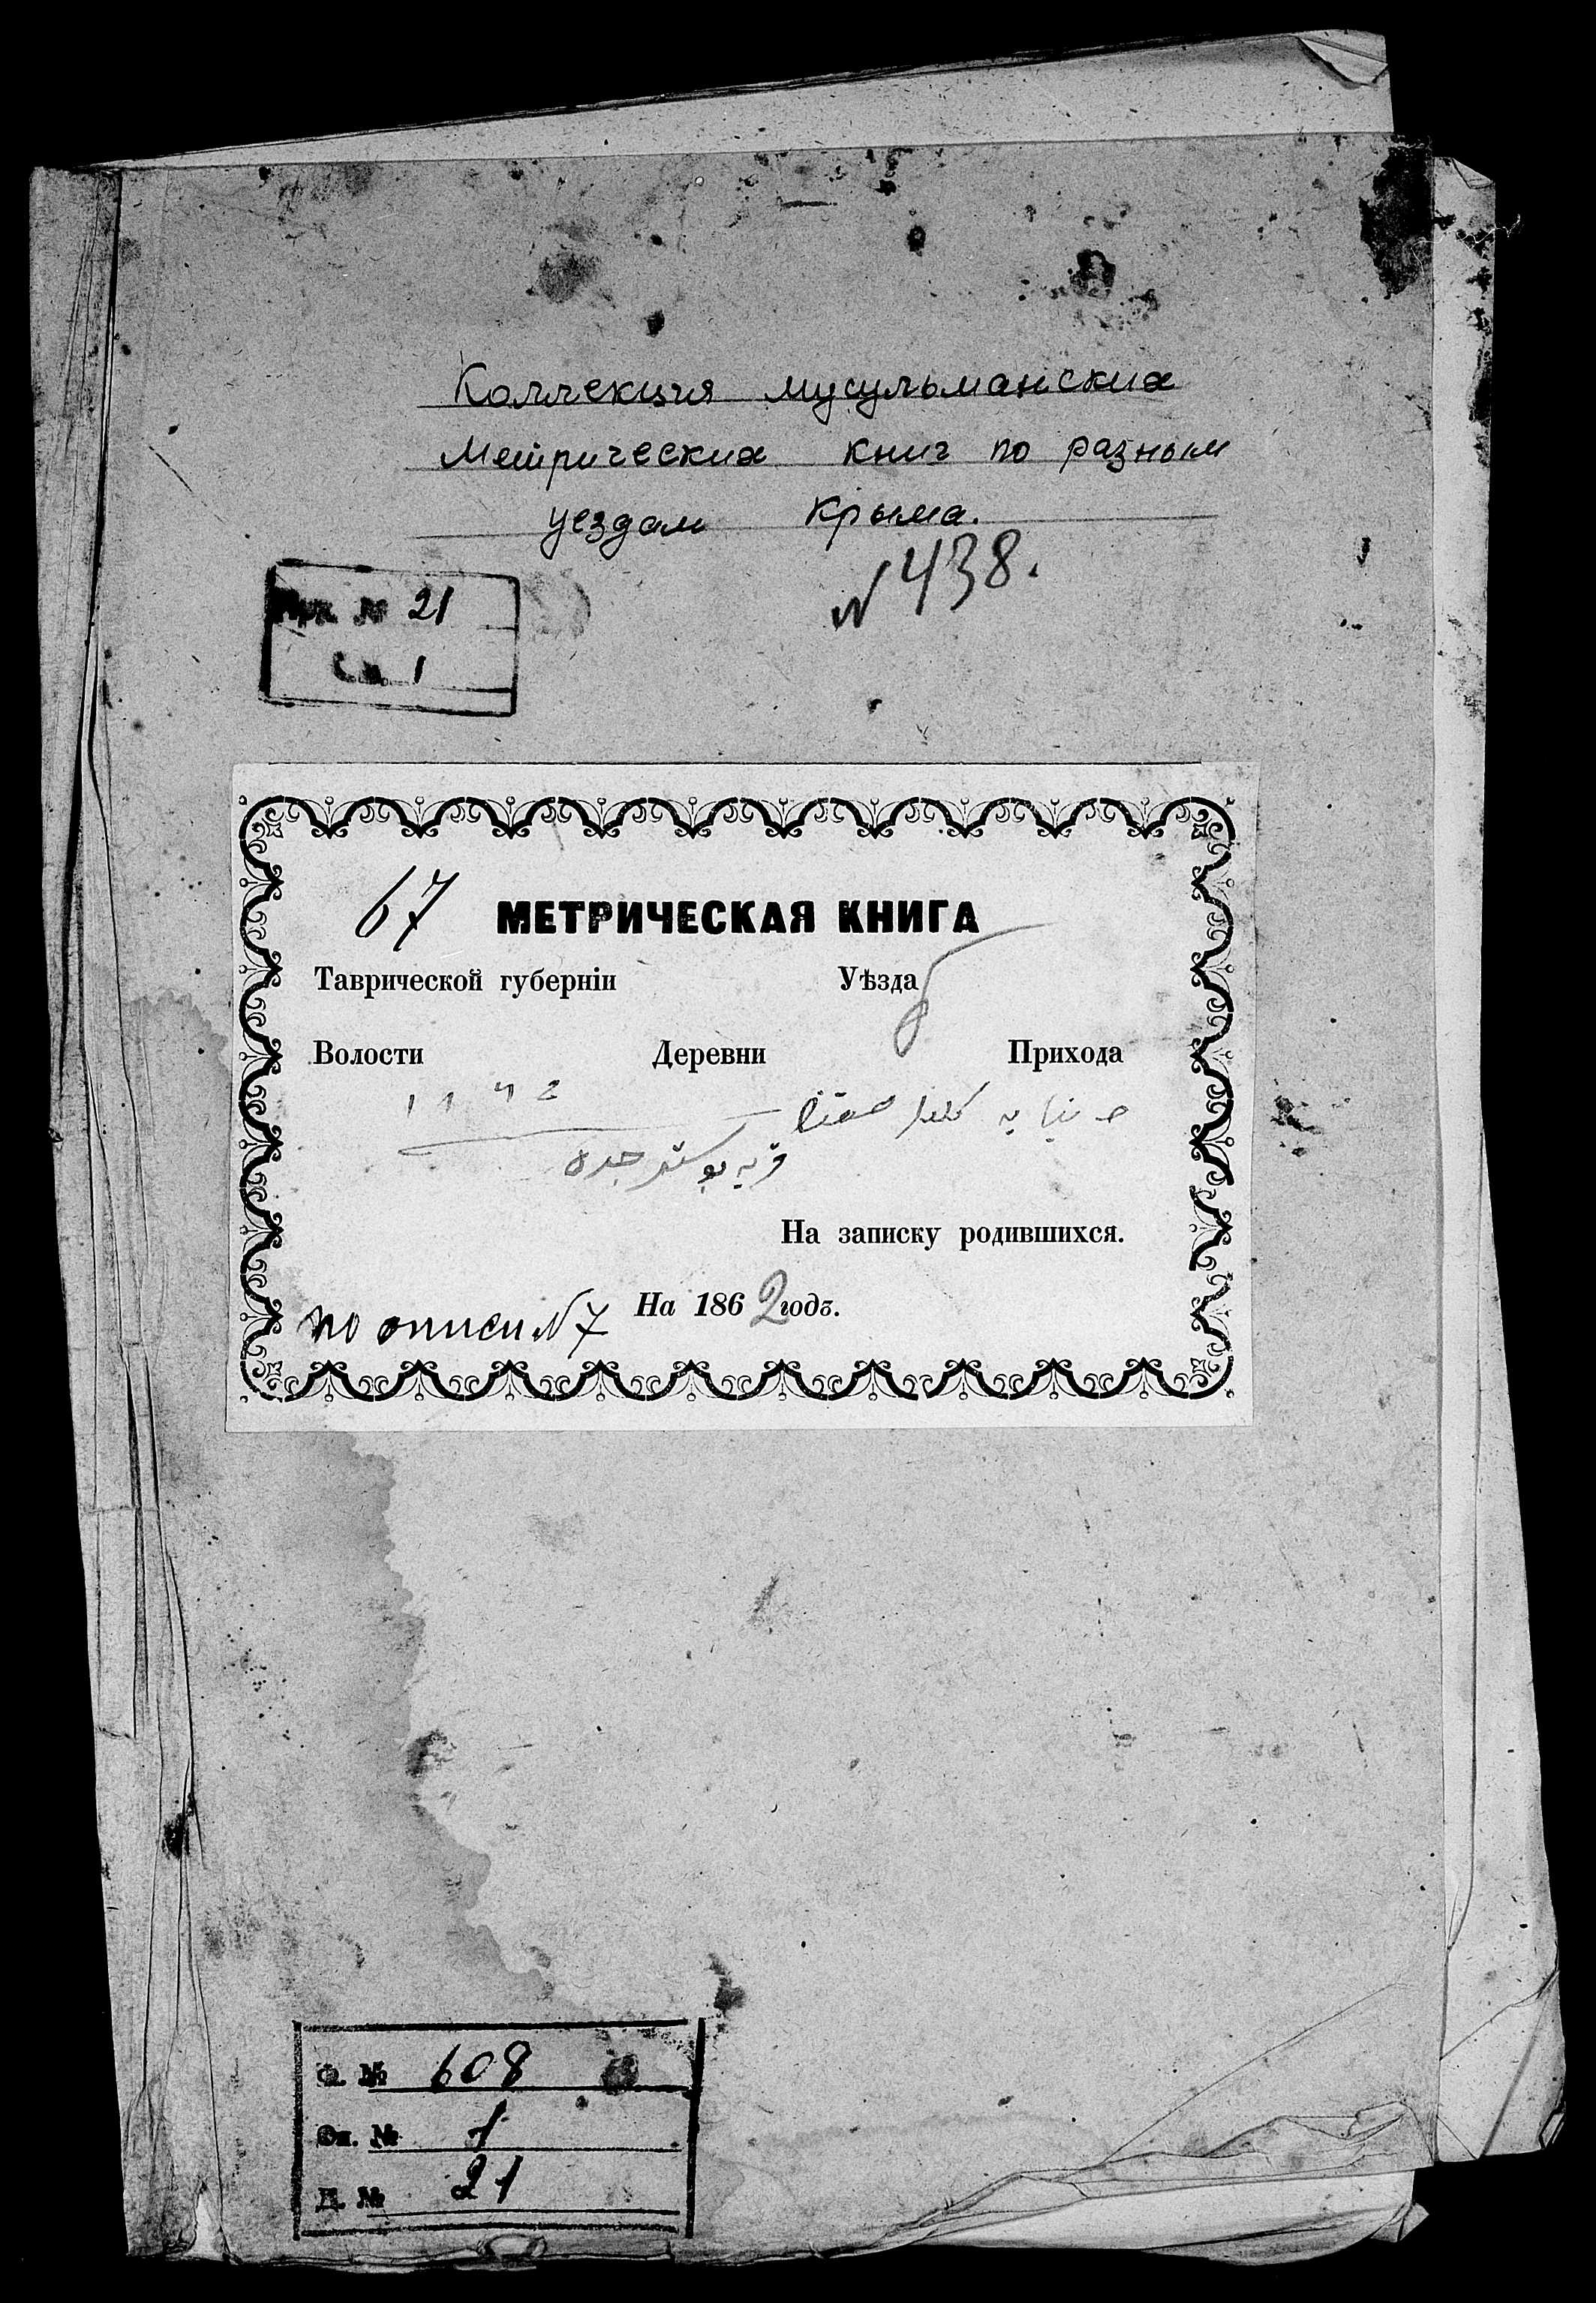 Коллекция мусульманских
метрических книг по разным
уездам Крыма.
№ 438.
№ 21
1
67 МЕТРИЧЕСКАЯ КНИГА
Таврической губерніи Уѣзда
Волости Деревни Прихода
На записку родившихся.
На 1862 годъ.
по описи № 7
Ф. № 608
Оп. № 1
Д. № 21